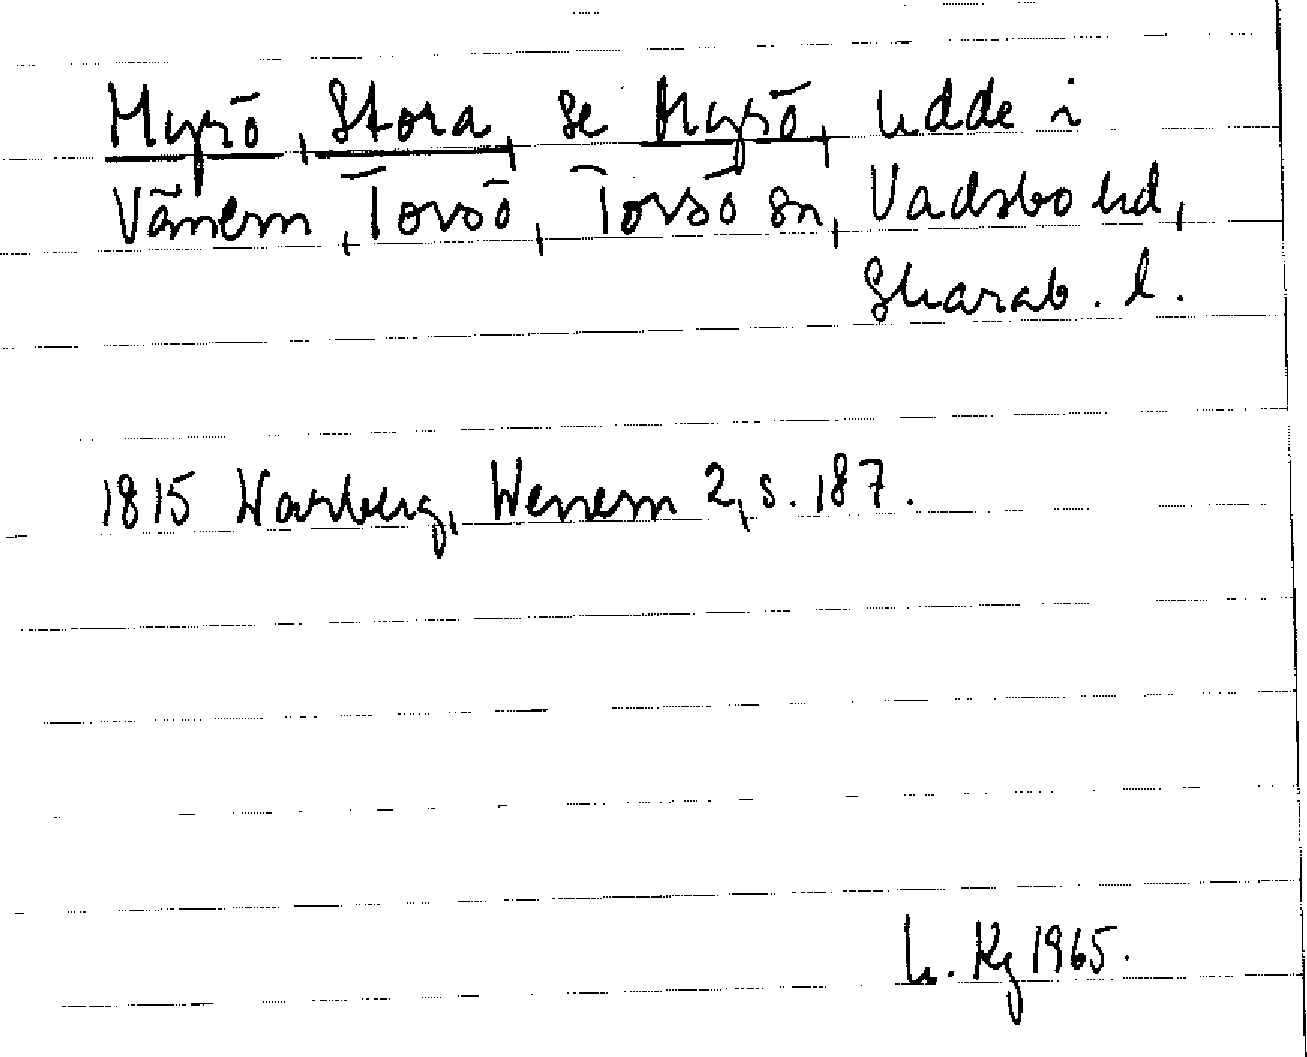 Mysö, Stora, se Mysö, udde i
Vänern, Torsö, Torsö sn, Vadsbo hd,
Skarab. l.
1815 Warberg, Wenern 2, s. 187.
L. Kg 1965.